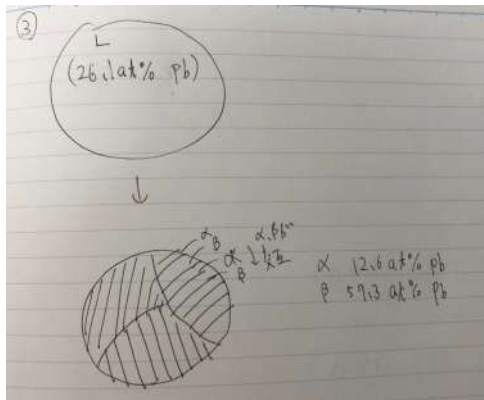 ③
L
(26.1at% pb)
↓
α
β
α
β
α,βが
↓交互
α 12.6 at% pb
β 59.3 at% pb